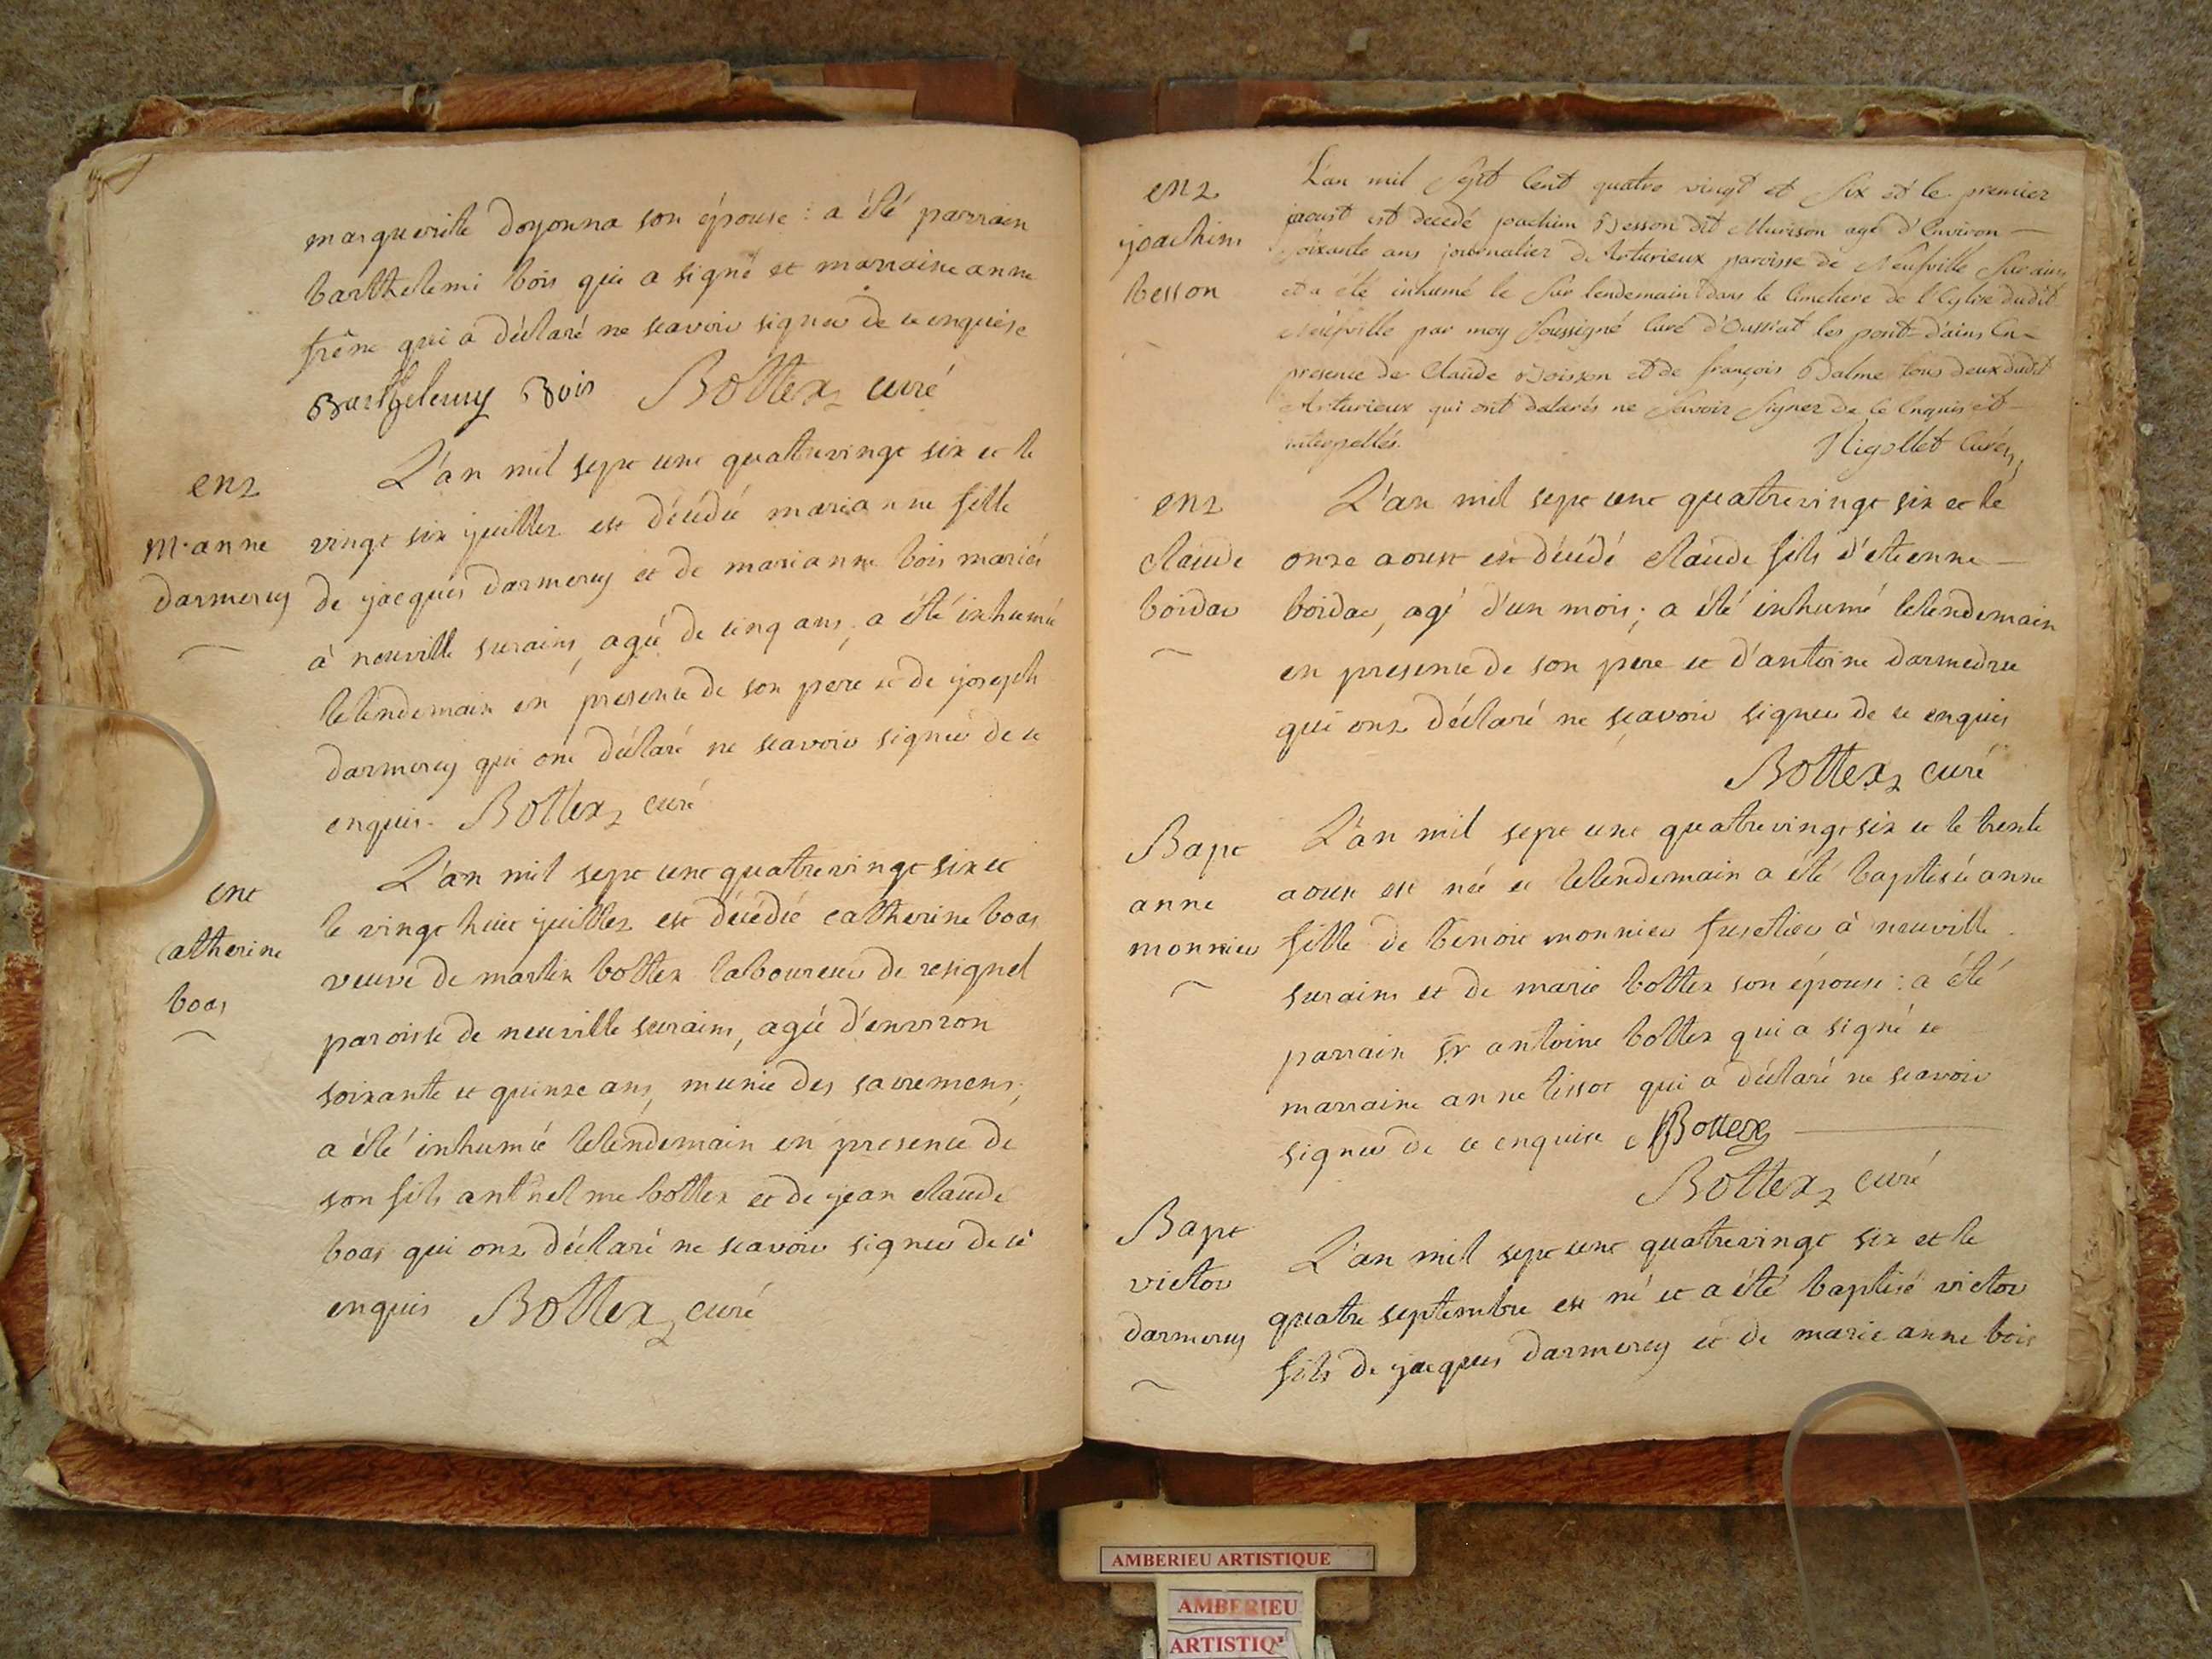 marguerite Doyonna son épouse : a été parrain
barthelemi bois qui a signé et marraine anne
frêne qui a déclaré ne scavoir signer de ce enquise
Barthelemy Bois Bottex curé
ent
m. anne
darmerey
L'an mil sept cent quatrevingt six et le
vingt six juillet est décédée marianne fille
de jacques darmerey et de marianne bois mariés
à neuville surains, agée de cinq ans, a été inhumée
lelendemain en presence de son pere et de joseph
darmerey qui ont déclaré ne scavoir signer de ce
enquis. Bottex curé
ent
Catherine
boas
L'an mil sept cent quatrevingt six et
le vingt huit juillet est décédée catherine boas
veuve de martin bottex laboureur de resignel
paroisse de neuville surains, agée d'environ
soixante et quinze ans, munie des sacremens,
a été inhumée lelendemain en presence de
son fils anthelme bottex et de jean claude
boas qui ont déclaré ne scavoir signer de ce
enquis Bottex curé
ent
joachim
besson
L'an mil Sept Cent quatre vingt et Six et le premier
jaoust est decedé joachim Besson dit Murison agé d'Environ
Soixante ans journalier d'Arturieux paroisse de Neufville Sur ains
et a été inhumé le Sur lendemain dans le Cimetiere de l'Eglise dudit
Neufville par moy Soussigné Curé d'Oussiat les pont-d'ains En
presence de Claude Boisson et de françois Balme tous deux dudit
Arturieux qui ont declarés ne Savoir Signer de Ce Enquis et
interpellés. Rigollet Curé
ent
claude
boidar
L'an mil sept cent quatrevingt six et le
onze aoust est décédé claude fils d'etienne
boidar, agé d'un mois, a été inhumé lelendemain
en presence de son pere et d'antoine darmedru
qui ont déclaré ne scavoir signer de ce enquis
Bottex curé
Bapt
anne
monnier
L'an mil sept cent quatrevingt six et le trente
aoust est née et lelendemain a été baptisée anne
fille de benoit monnier fusetier à neuville
surains et de marie bottex son épouse : a été
parrain sr antoine bottex qui a signé et
marraine anne tissot qui a déclaré ne scavoir
signer de ce enquise Bottex
Bottex curé
Bapt
victor
darmerey
L'an mil sept cent quatrevingt six et le
quatre septembre est né et a été baptisé victor
fils de jacques darmerey et de marie anne bois
AMBERIEU ARTISTIQUE
AMBERIEU
ARTISTIQ